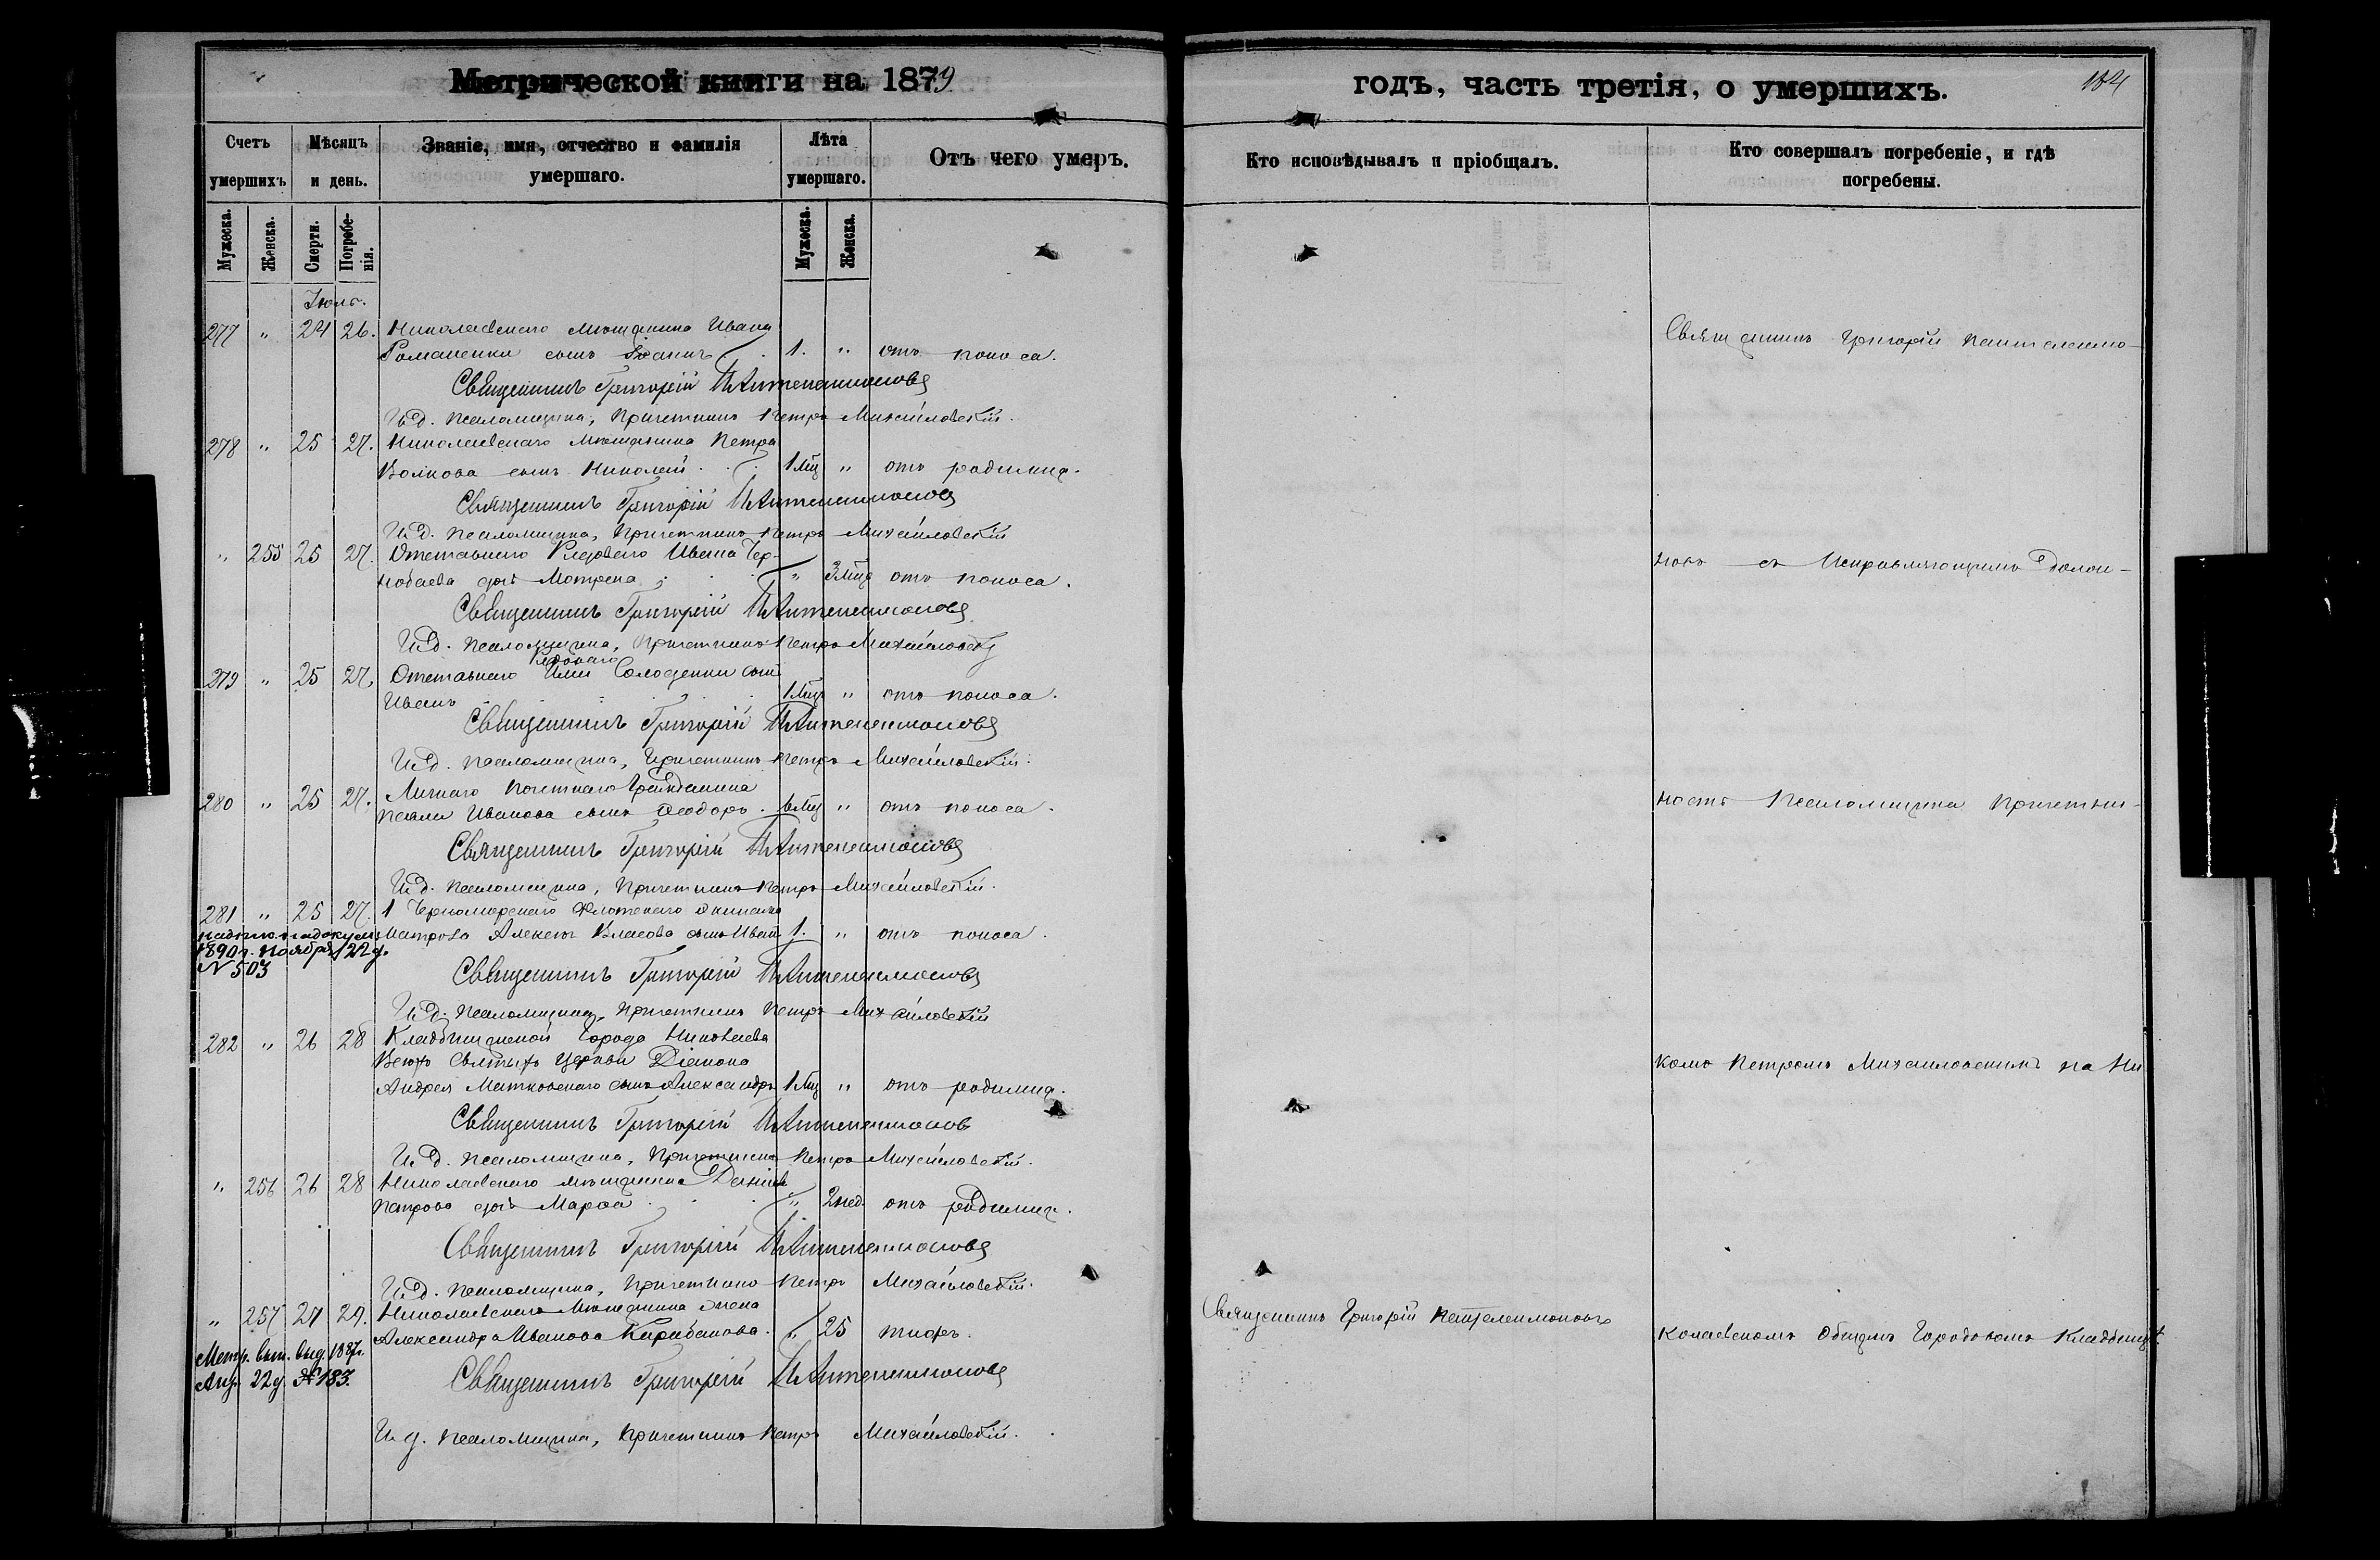 Метрической книги на 1879
годъ, часть третія, о умершихъ.
184
Счетъ умершихъ
Мѣсяцъ и день.
Званіе, имя, отчество и фамилія умершаго.
Лѣта умершаго.
Отъ чего умеръ.
Кто исповѣдывалъ и пріобщалъ.
Кто совершалъ погребеніе, и гдѣ погребены.
Мужеска.
Женска.
Смерти.
Погребенія.
Мужеска.
Женска.
Іюль.
277 " 24 26. Николаевскаго мѣщанина Ивана
Романенки сынъ Іоаннъ 1. " отъ поноса.
Священникъ Григорій Пантелеимоновъ
И.д. псаломщика, Причетникъ Петръ Михайловскій.
278 " 25 27. Николаевскаго мѣщанина Петра
Волкова сынъ Николай 1 мѣц " отъ родимца.
Священникъ Григорій Пантелеимоновъ
И.д. псаломщика, Причетникъ Петръ Михайловскій
" 255 25 27. Отставнаго Рядоваго Ивана Чер-
нобаева дочь Матрена " 3 мѣц отъ поноса.
Священникъ Григорій Пантелеимоновъ
И.д. псаломщика, Причетникъ Петръ Михайловскій
279 " 25 27. Отставнаго Рядоваго Иліи Солоденки сынъ
Иванъ 1 мѣц " отъ поноса.
Священникъ Григорій Пантелеимоновъ
И.д. псаломщика, Причетникъ Петръ Михайловскій.
280 " 25 27. Личнаго почетнаго Гражданина
Павла Иванова сынъ Ѳеодоръ. 6 мѣц " отъ поноса.
Священникъ Григорій Пантелеимоновъ
И.д. псаломщика, Причетникъ Петръ Михайловскій.
281 " 25 27. 1 Черноморскаго Флотскаго экипажа
матроса Алексѣя Власова сынъ Иванъ 1. " отъ поноса.
1890 г. Ноября 22 д.
N 503
Священникъ Григорій Пантелеимоновъ
И.д. псаломщика, Причетникъ Петръ Михайловскій
282 " 26 28 Кладбищенской Города Николаева
Всѣхъ Святыхъ Церкви Діакона
Андрея Матковскаго сынъ Александръ 1 мѣц " отъ родимца.
Священникъ Григорій Пантелеимоновъ
И.д. псаломщика, Причетникъ Петръ Михайловскій.
" 256 26 28 Николаевскаго мѣщанина Даніила
Петрова дочь Марѳа " 2 нед. отъ родимца.
Священникъ Григорій Пантелеимоновъ
И.д. псаломщика, Причетникъ Петръ Михайловскій.
" 257 27 29. Николаевскаго мѣщанина жена
Александра Иванова Карабанова. " 25 тифъ.
Метр. вып. выд. 1887 г.
Апр. 22 д. № 183.
Священникъ Григорій Пантелеимоновъ
И.д. псаломщика, Причетникъ Петръ Михайловскій.
Священникъ Григорій Пантелеимоновъ
Священникъ Григорій Пантелеимо-
новъ съ Исправляющимъ Долж-
ность Псаломщика Причетни-
комъ Петромъ Михайловскимъ на Ни
колаевскомъ Общемъ Городскомъ Кладбищѣ